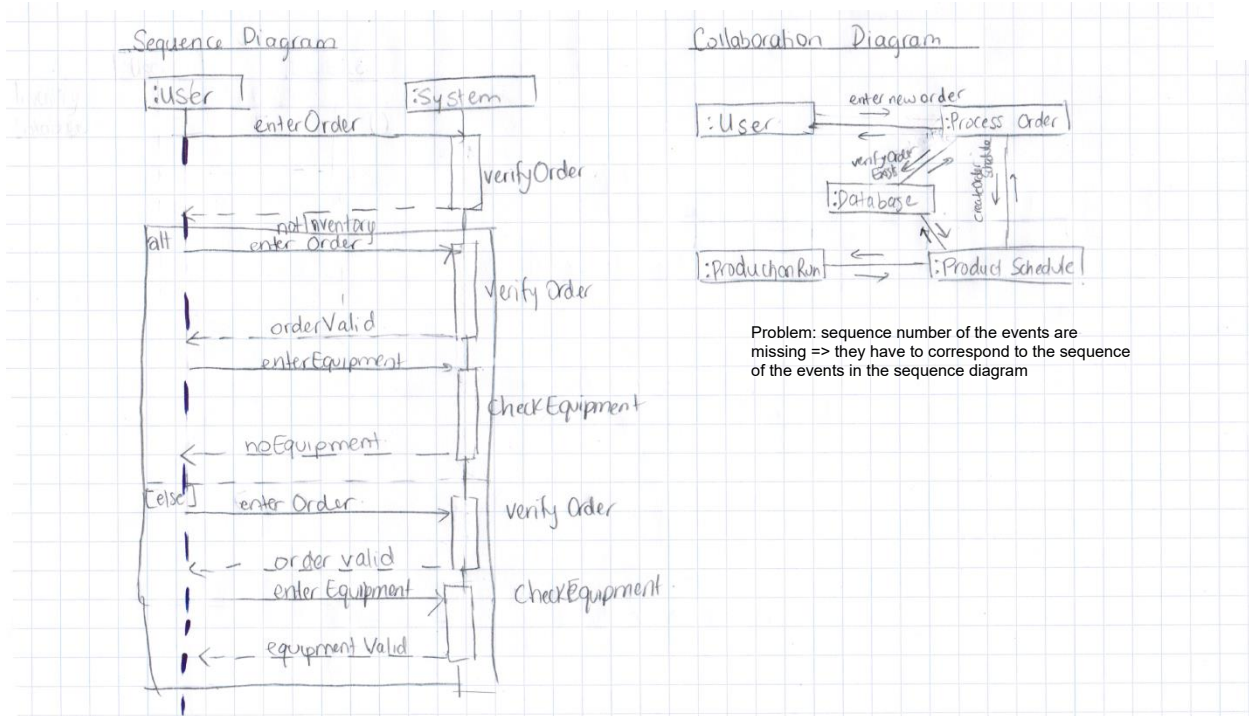 Sequence Diagram
:User
:System
enterOrder
verifyOrder
notInventory
alt
enter Order
Verify Order
orderValid
enterEquipment
CheckEquipment
noEquipment
[else]
enter Order
verify Order
order valid
enter Equipment
CheckEquipment
equipment Valid
Collaboration Diagram
enter new order
:User
:Process Order
verifyOrder
Exists
createOrder
Schedule
:Database
:ProductionRun
:Product Schedule
Problem: sequence number of the events are
missing => they have to correspond to the sequence
of the events in the sequence diagram